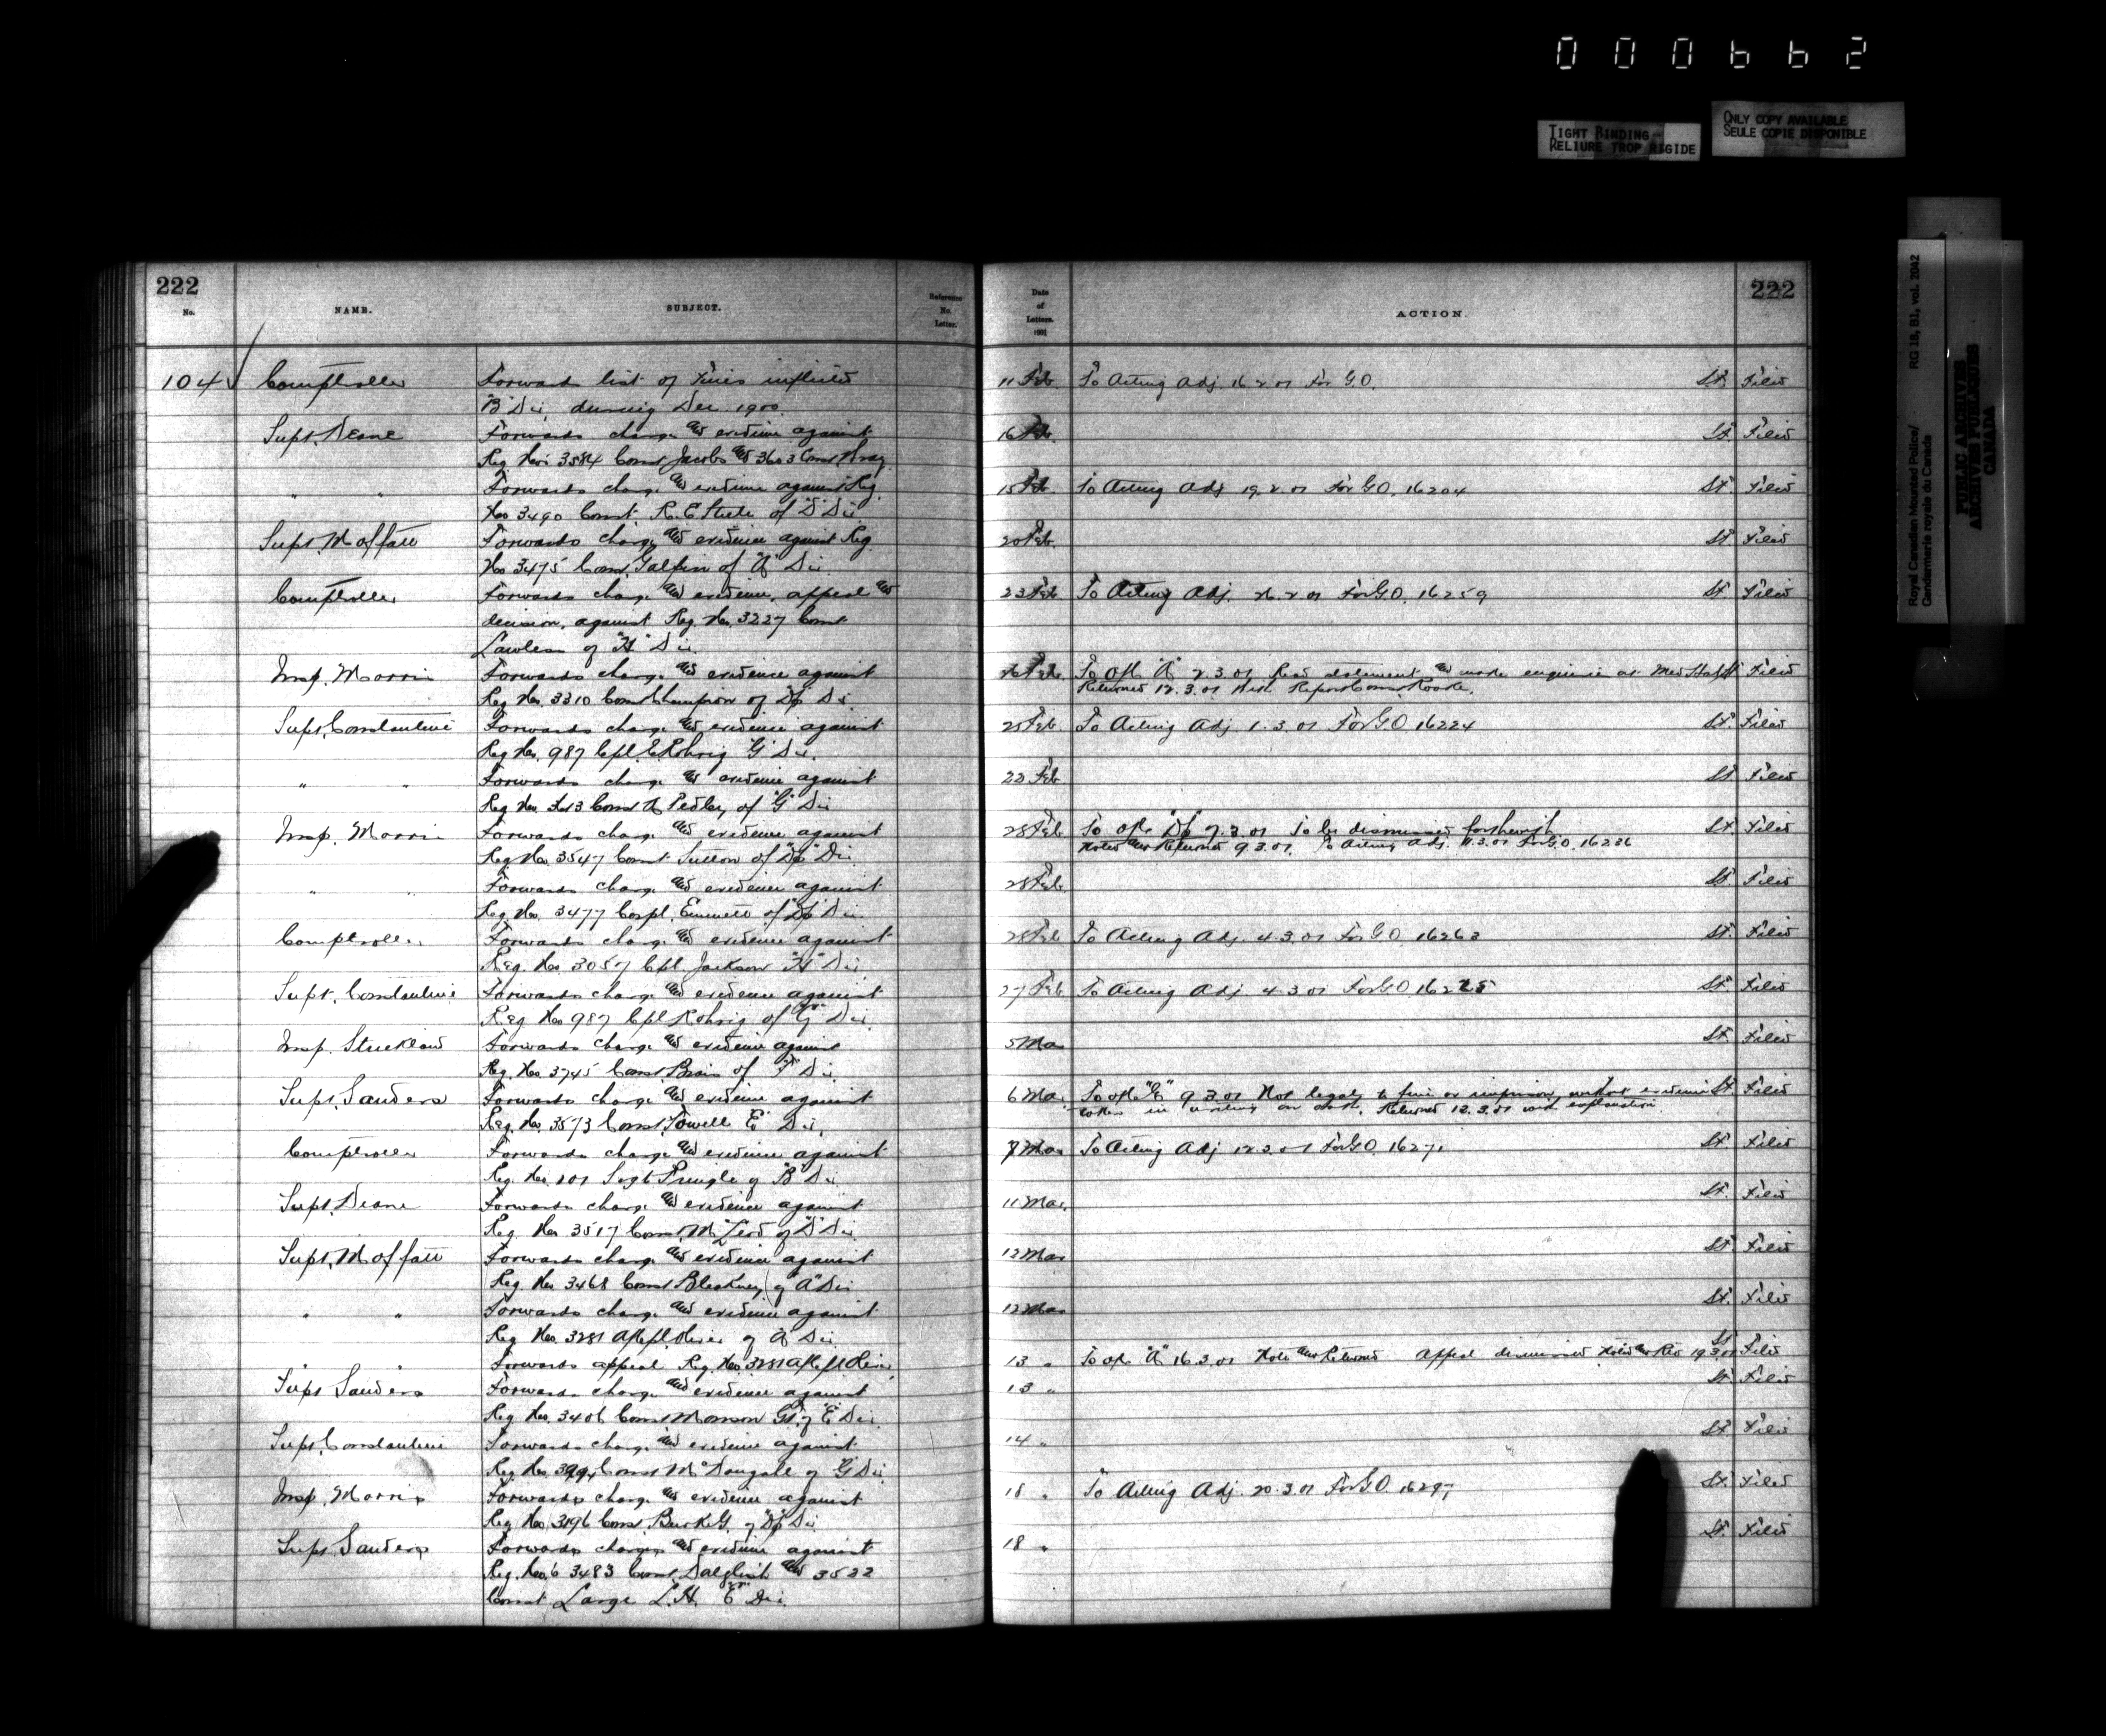 000662
TIGHT BINDING
RELIURE TROP RIGIDE
ONLY COPY AVAILABLE
SEULE COPIE DISPONIBLE
Royal Canadian Mounted Police/ RG 18, B1, vol. 2042
Gendarmerie royale du Canada
PUBLIC ARCHIVES
ARCHIVES PUBLIQUES
CANADA
222
No. NAME. SUBJECT. Reference No. Letter. Date of Letters. 1901 ACTION.
222
104 Comptroller Forwards list of Fines inflicted 11 Feb. To Acting Adj 16.2.01 For G.O. St. Filed
"B" Div. during Dec 1900.
Supt. Deane Forwards charge and evidence against 16 Feb. St. Filed
Reg. Nos 3584 Const Jacobs and 3603 Const
" " Forwards charge and evidence against Reg. 15 Feb. To Acting Adj 19.2.01 For G.O. 16204 St. Filed
No 3490 Const. R. E. Steele of "D" Div
Supt. Moffatt Forwards charge and evidence against Reg 20 Feb. St. Filed
No 3475 Const. Galpin of "A" Div.
Comptroller Forwards charge and evidence, appeal and 23 Feb To Acting Adj. 26.2.01 For G.O. 16259 St. Filed
decision, against Reg. No. 3227 Const
Lawless of "H" Div.
Insp. Morris Forwards charge and evidence against 26 Feb. To ofc "A" 2.3.01 Read statement and make enquiries as Med Staff Filed
Reg. No. 3310 Const Champion of "Dp" Div. Returned 12.3.01 with Report Const. Rooke.
Supt. Constantine Forwards charge and evidence against 25 Feb. To Acting Adj. 1.3.01 For G.O. 16224 St. Filed
Reg No. 987 Cpl. E. Rohrig "G" Div.
" " Forwards charge and evidence against 22 Feb St Filed
Reg No. Const A Pedley of "G" Div
Insp. Morris Forwards charge and evidence against 28 Feb. To ofc "Dp" 7.3.01 To be dismissed forthwith St. Filed
Reg No. 3547 Const Sutton of "Dp" Div. Noted and Returned 9.3.01. To Acting Adj. 11.3.01 For G.O. 16236
" " Forwards charge and evidence against 28 Feb. St. Filed
Reg. No. 3477 Corpl. Emmett of "Dp" Div.
Comptroller Forwards charge and evidence against 28 Feb To Acting Adj. 4.3.01 For G.O. 16263 St. Filed
Reg. No. 3057 Cpl. Jackson "H" Div.
Supt. Constantine Forwards charge and evidence against 27 Feb To Acting Adj 4.3.01 For G.O. 16225 St. Filed
Reg No 987 Cpl Rohrig of "G" Div.
Insp. Strickland Forwards charge and evidence against 5 Mar St. Filed
Reg. No. 3745 Const. Brais of "F" Div.
Supt. Sanders Forwards charge and evidence against 6 Mar. To ofc "E" 9.3.01 Not legal to fine or imprison without evidence St. Filed
Reg. No. 3573 Const. Towell "E" Div. taken in writing on oath. Returned 12.3.01 with explanation
Comptroller Forwards charge and evidence against 7 Mar To Acting Adj 12.3.01 For G.O. 16271 St. Filed
Reg. No. Sergt Pringle of "B" Div
Supt. Deane Forwards charge and evidence against 11 Mar. St. Filed
Reg. No 3517 Const. McLeod of "D" Div
Supt. Moffatt Forwards charge and evidence against 12 Mar St. Filed
Reg. No. 3468 Const Bleakney of "A" Div
" " Forwards charge and evidence against 12 Mar St. Filed
Reg. No. 3281 A/Cpl of "A" Div
Forwards appeal Reg. No. 3281 A/Cpl 13 " To ofc "A" 16.3.01 Note and Return Appeal dismissed Noted and Ret 19.3.01 St Filed
Supt Sanders Forwards charge and evidence against 13 " St. Filed
Reg. No. 3406 Const Monson of "E" Div.
Supt. Constantine Forwards charge and evidence against 14 " St. Filed
Reg. No. Const McDougall of "G" Div
Insp. Morris Forwards charge and evidence against 18 " To Acting Adj. 20.3.01 For G.O. 16297 St. Filed
Reg. No. 3196 Const. Burke G. of "Dp" Div.
Supt. Sanders Forwards charges and evidence against 18 " St. Filed
Reg. Nos 3483 Const. Dalglish and 3522
Const Large L.H. "E" Div.